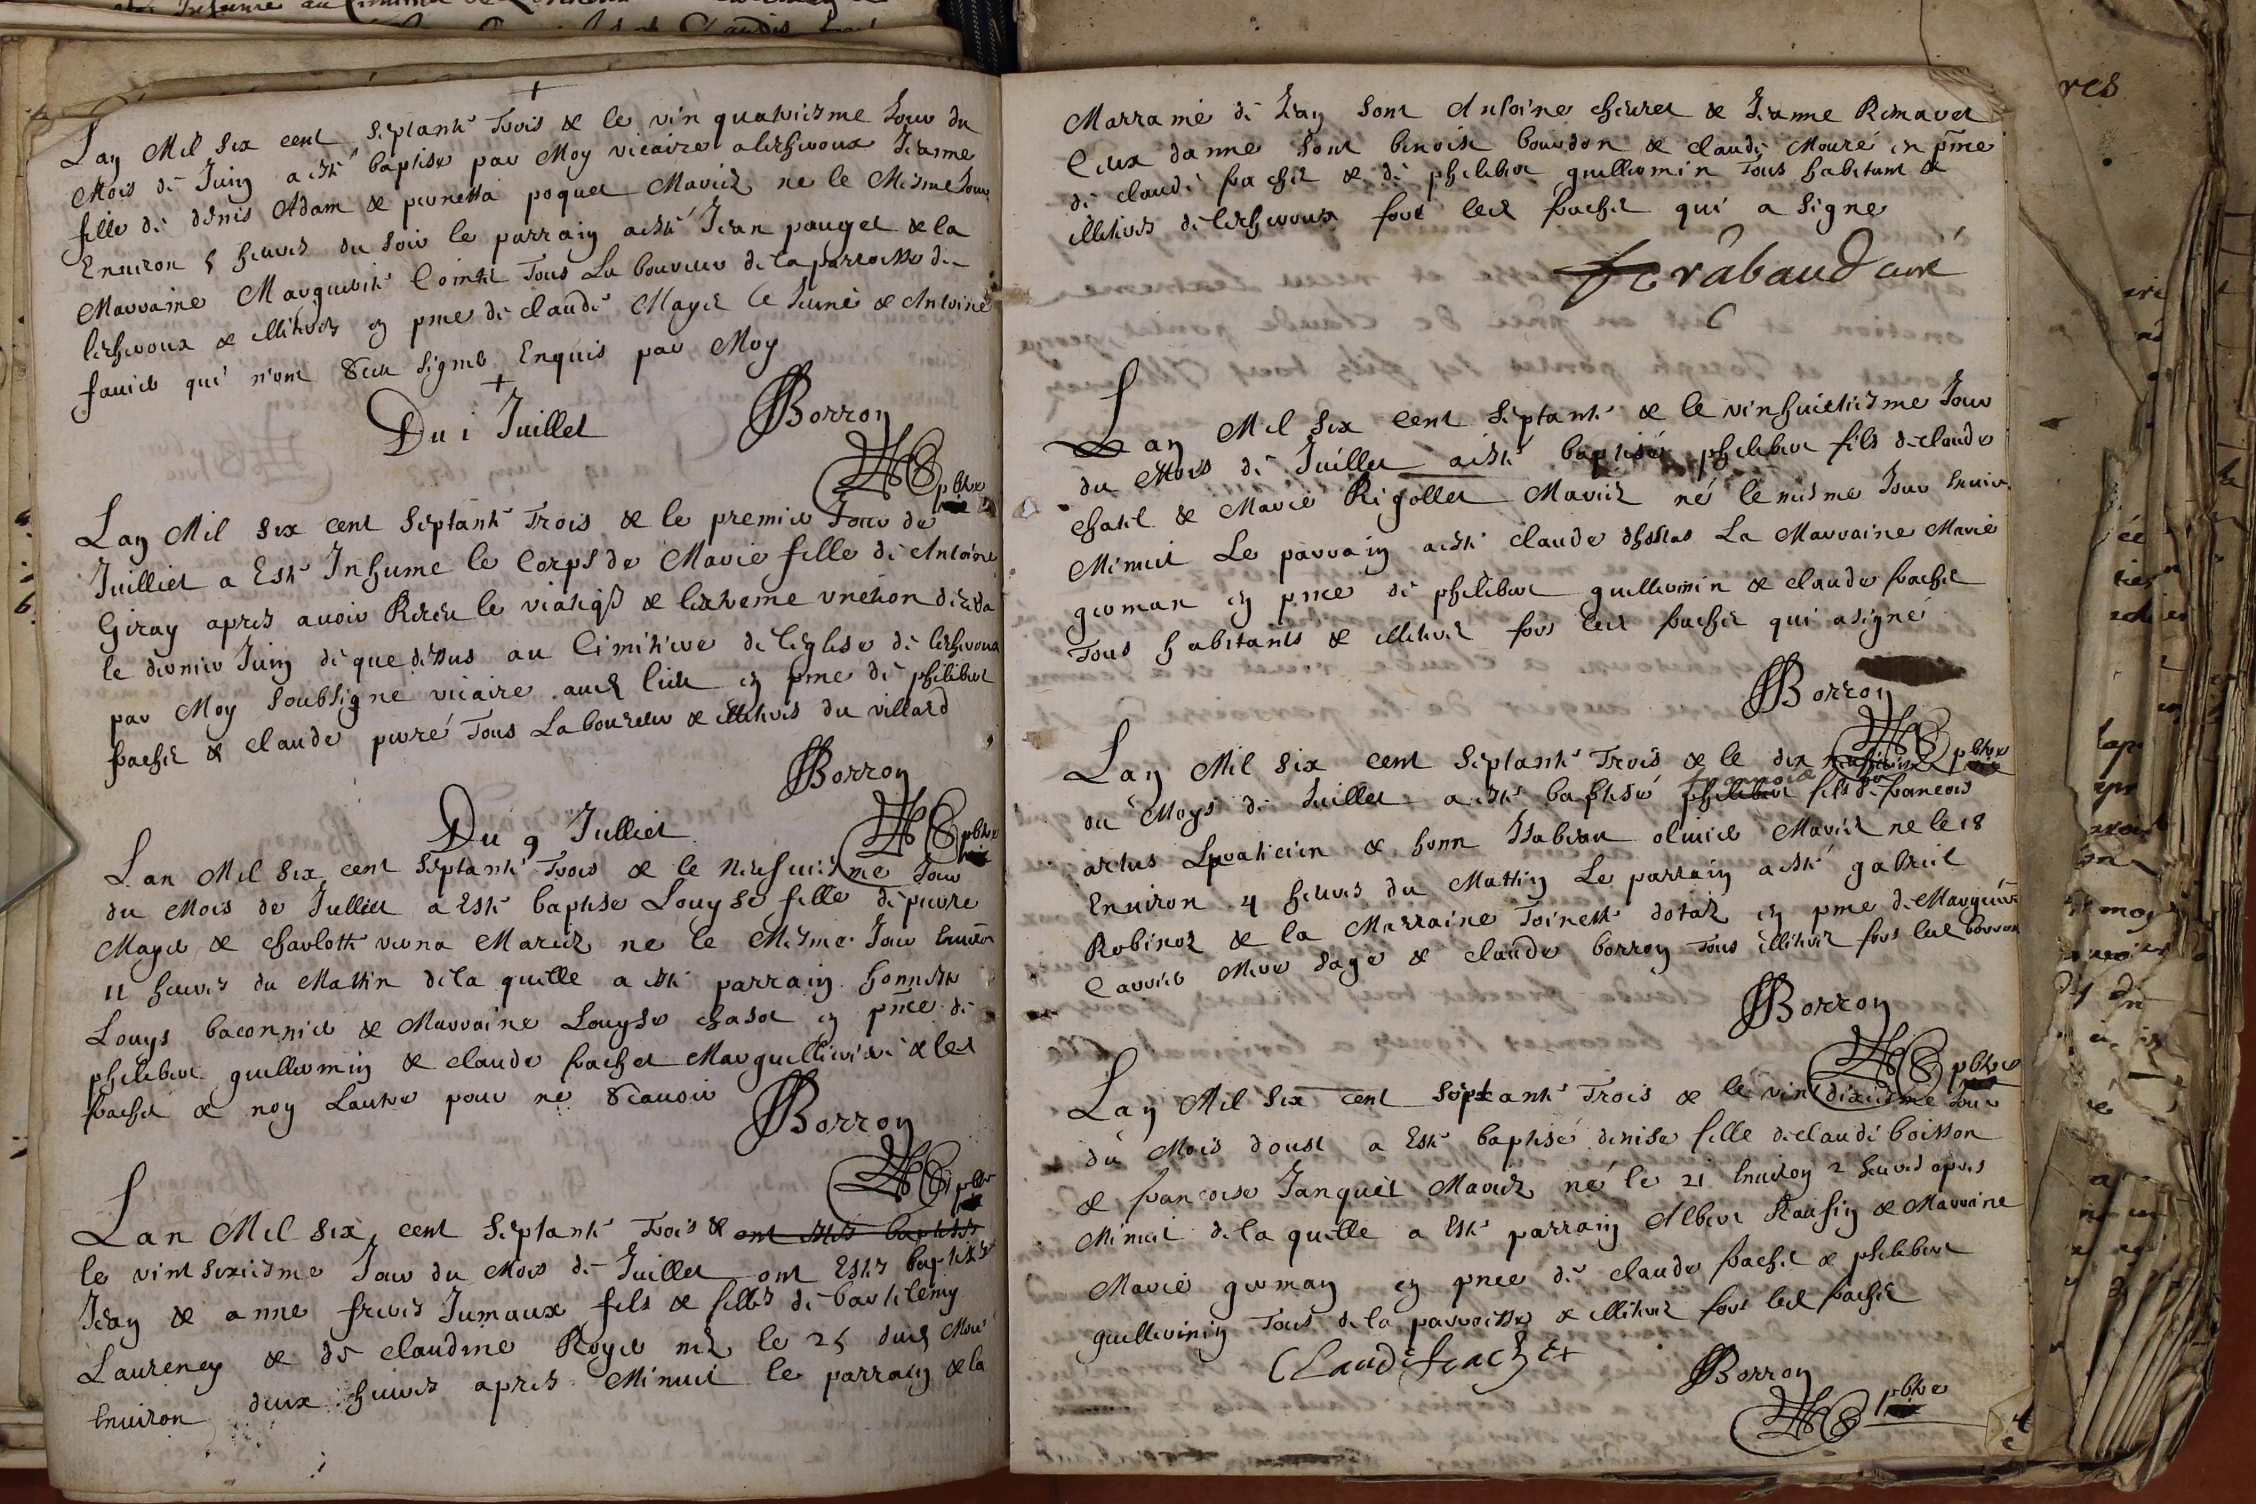 Lan Mil Six cent Septante Trois & le vin quatriesme Jour du
Mois de Juin a este baptise par Moy vicaire a Lescheroux Jeanne
fille de denis Adam & pernetta poquet Mariez ne le Mesme Jour
Environ 5 heures du Soir le parrain a este Jean pauget & la
Marraine Marguerite Comte Tous La boureur de la parroisse de
lescheroux & illiteres en pnce de claude Mayet le Jeune & Antoine
favier qui n'ont Sceu Signer Enquis par Moy
Borron
pbtre
Du 1 Juillet
Lan Mil Six cent Septante Trois & le premier Jour de
Juilliet a Este Inhume le Corps de Marie fille de Antoine
Giray apres avoir Receu le viatiq & lextreme unction decedа
le dernier Juin de que dessus au Cimitiere de leglise de lescheroux
par Moy Soubsigne vicaire aud lieu en pnce de philibert
frachet & claude perré Tous Laboureur & illiteres du villard
Borron
pbtre
Du 9 Julliet
Lan Mil Six cent Septante Trois & le Neufviesme Jour
du Mois de Julliet a Este baptise Louyse fille de pierre
Mayet & charlotte verna Mariez ne le Mesme Jour Environ
11 heures du Mattin de la quelle a este parrain honneste
Louys baconnier & Marraine Louyse chasot en pnce de
philibert guillermin & claude frachet Marguillier & led
frachet & non Lautre pour ne Scavoir
Borron
pbtre
Lan Mil Six cent Septante Trois & ont estes baptises
le vint Sixiesme Jour du Mois de Juillet ont Estes baptises
Jean & anne freres Jumaux fils & filles de bartelemy
Laurency & de claudine Royer nez le 25 dud Mois
Environ deux heures apres Minuit le parrain & la
Marraine de Jean Sont Antoine cheuret & Jeanne Renavet
Ceux danne Sont benoist bourdon & claude Mouré en pnce
de claude frachet & de philibert guillermin Tous habitant &
illiteres de lescheroux fors led frachet qui a Signe
rabaud curé
Lan Mil Six Cent Septante & le vinhuictiesme Jour
du Mois de Juillet a esté baptisé philibert fils de claude
chatel & Marie Rigollet Mariez né le mesme Jour Environ
Minuit Le parrain a este claude La Marraine Marie
german en pnce de philibert guillermin & claude frachet
Tous habitants & illiteres fors led frachet qui a signé
Borron
pbtre
Lan Mil Six cent Septante Trois & le dix
du Moys de Juillet a este baptisé francois philibert fils de francois
artus Lpraticien & honn Isabeau olivier Mariez ne le 18
Environ 4 heures du Mattin Le parrain a este gabriel
Robinot & la Marraine Toinette dotaz en pnce de Marguerite
Carrier Mere Sage & claude borron Tous illiteres fors led borron
Borron
pbtre
Lan Mil Six cent Septante Trois & le vin dixiesme Jour
du Mois doust a Este baptisé denise fille de claude boisson
& francoise Janquet Mariez né le 21 Environ 2 heures apres
Minuit de la quelle a Este parrain Albert & Marraine
Marie german en pnce de claude frachet & philibert
guillermin Tous de la parroisse & illiteres fors led frachet
Claude frachet
Borron
pbtre